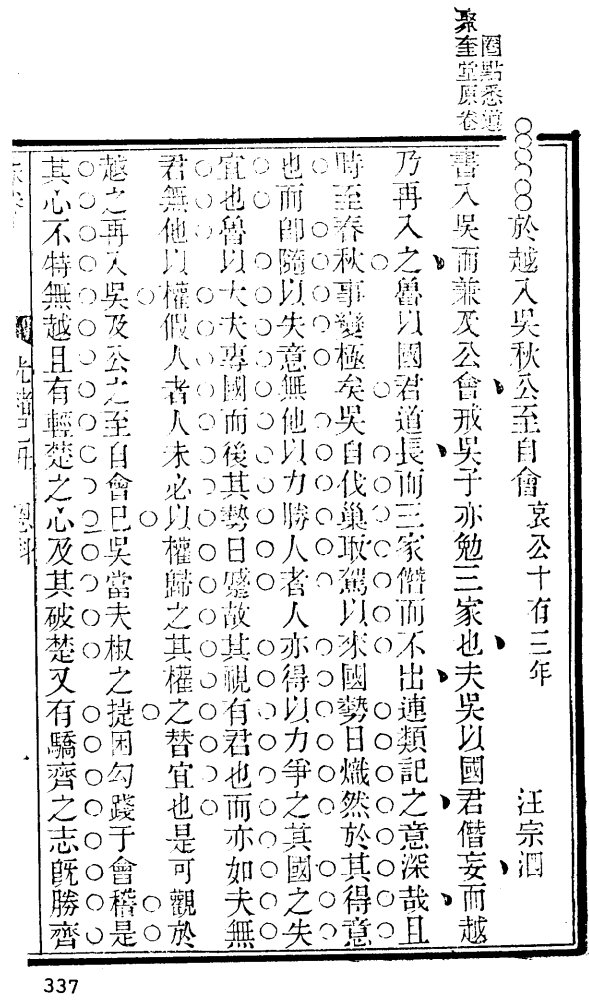 圈點悉遵
聚奎堂原卷
於越入吳秋公至自會 哀公十有三年 汪宗泗
書入吳而兼及公會戒吳子亦勉三家也夫吳以國君僭妄而越
乃再入之魯以國君道長而三家僭而不出連類記之意深哉且
時至春秋事變極矣吳自伐巢取駕以來國勢日熾然於其得意
也而卽隨以失意無他以力勝人者人亦得以力爭之其國之失
宜也魯以大夫專國而後其勢日蹙故其視有君也而亦如夫無
君無他以權假人者人未必以權歸之其權之替宜也是可觀於
越之再入吳及公之至自會已吳當夫椒之捷困勾踐于會稽是
其心不特無越且有輕楚之心及其破楚又有驕齊之志旣勝齊
光緒己丑 恩科
337